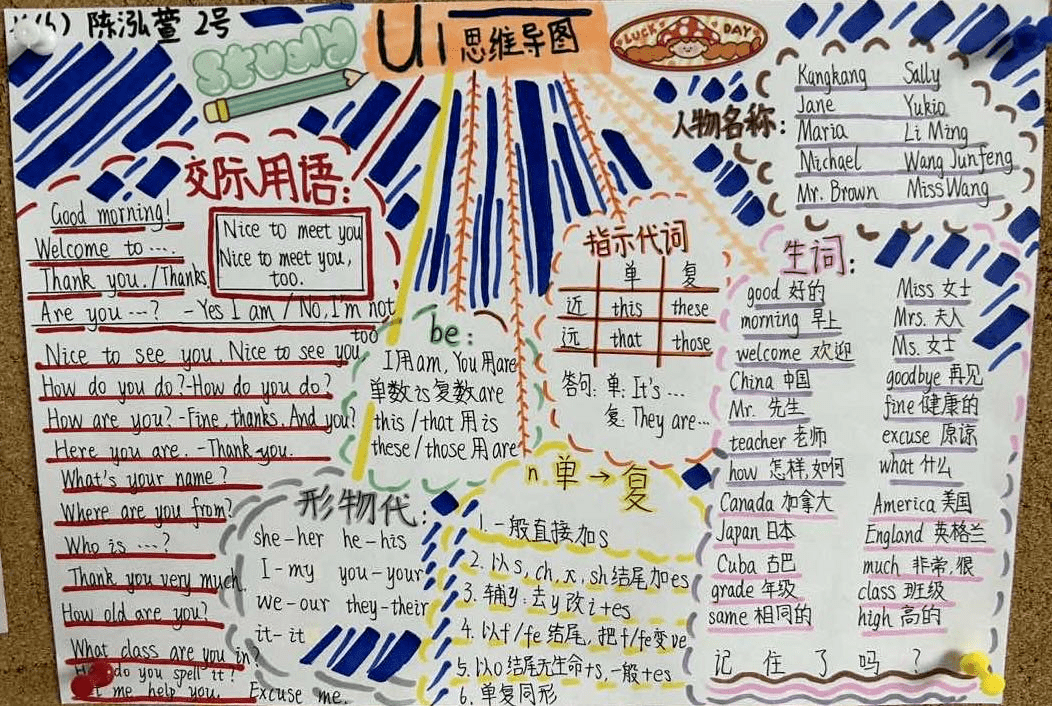 陈泓萱 2号
study
U1 思维导图
LUCK DAY
人物名称:
Kangkang Sally
Jane Yukio
Maria Li Ming
Michael Wang Junfeng
Mr. Brown Miss Wang
交际用语:
Good morning!
Welcome to ....
Thank you./Thanks.
Nice to meet you
Nice to meet you,
too.
Are you ...? - Yes I am / No, I'm not
Nice to see you. Nice to see you
too
How do you do?-How do you do?
How are you?-Fine, thanks. And you?
Here you are. -Thank you.
What's your name?
Where are you from?
Who is ...?
Thank you very much.
How old are you?
What class are you in?
do you spell it?
me help you. Excuse me.
be:
I用am, You用are
单数is复数are
this/that用is
these/those用are
指示代词
单 复
近 this these
远 that those
答句: 单: It's ...
复: They are...
形物代:
she-her he-his
I-my you-your
we-our they-their
it-it
n.单→复
1.一般直接加s
2.以s,ch,x,sh结尾加es
3.辅y:去y改i+es
4.以f/fe结尾,把f/fe变ve
5.以o结尾无生命+s,一般+es
6.单复同形
生词:
good 好的 Miss 女士
morning 早上 Mrs. 夫人
welcome 欢迎 Ms. 女士
China 中国 goodbye 再见
Mr. 先生 fine 健康的
teacher 老师 excuse 原谅
how 怎样,如何 what 什么
Canada 加拿大 America 美国
Japan 日本 England 英格兰
Cuba 古巴 much 非常,很
grade 年级 class 班级
same 相同的 high 高的
记住了吗?